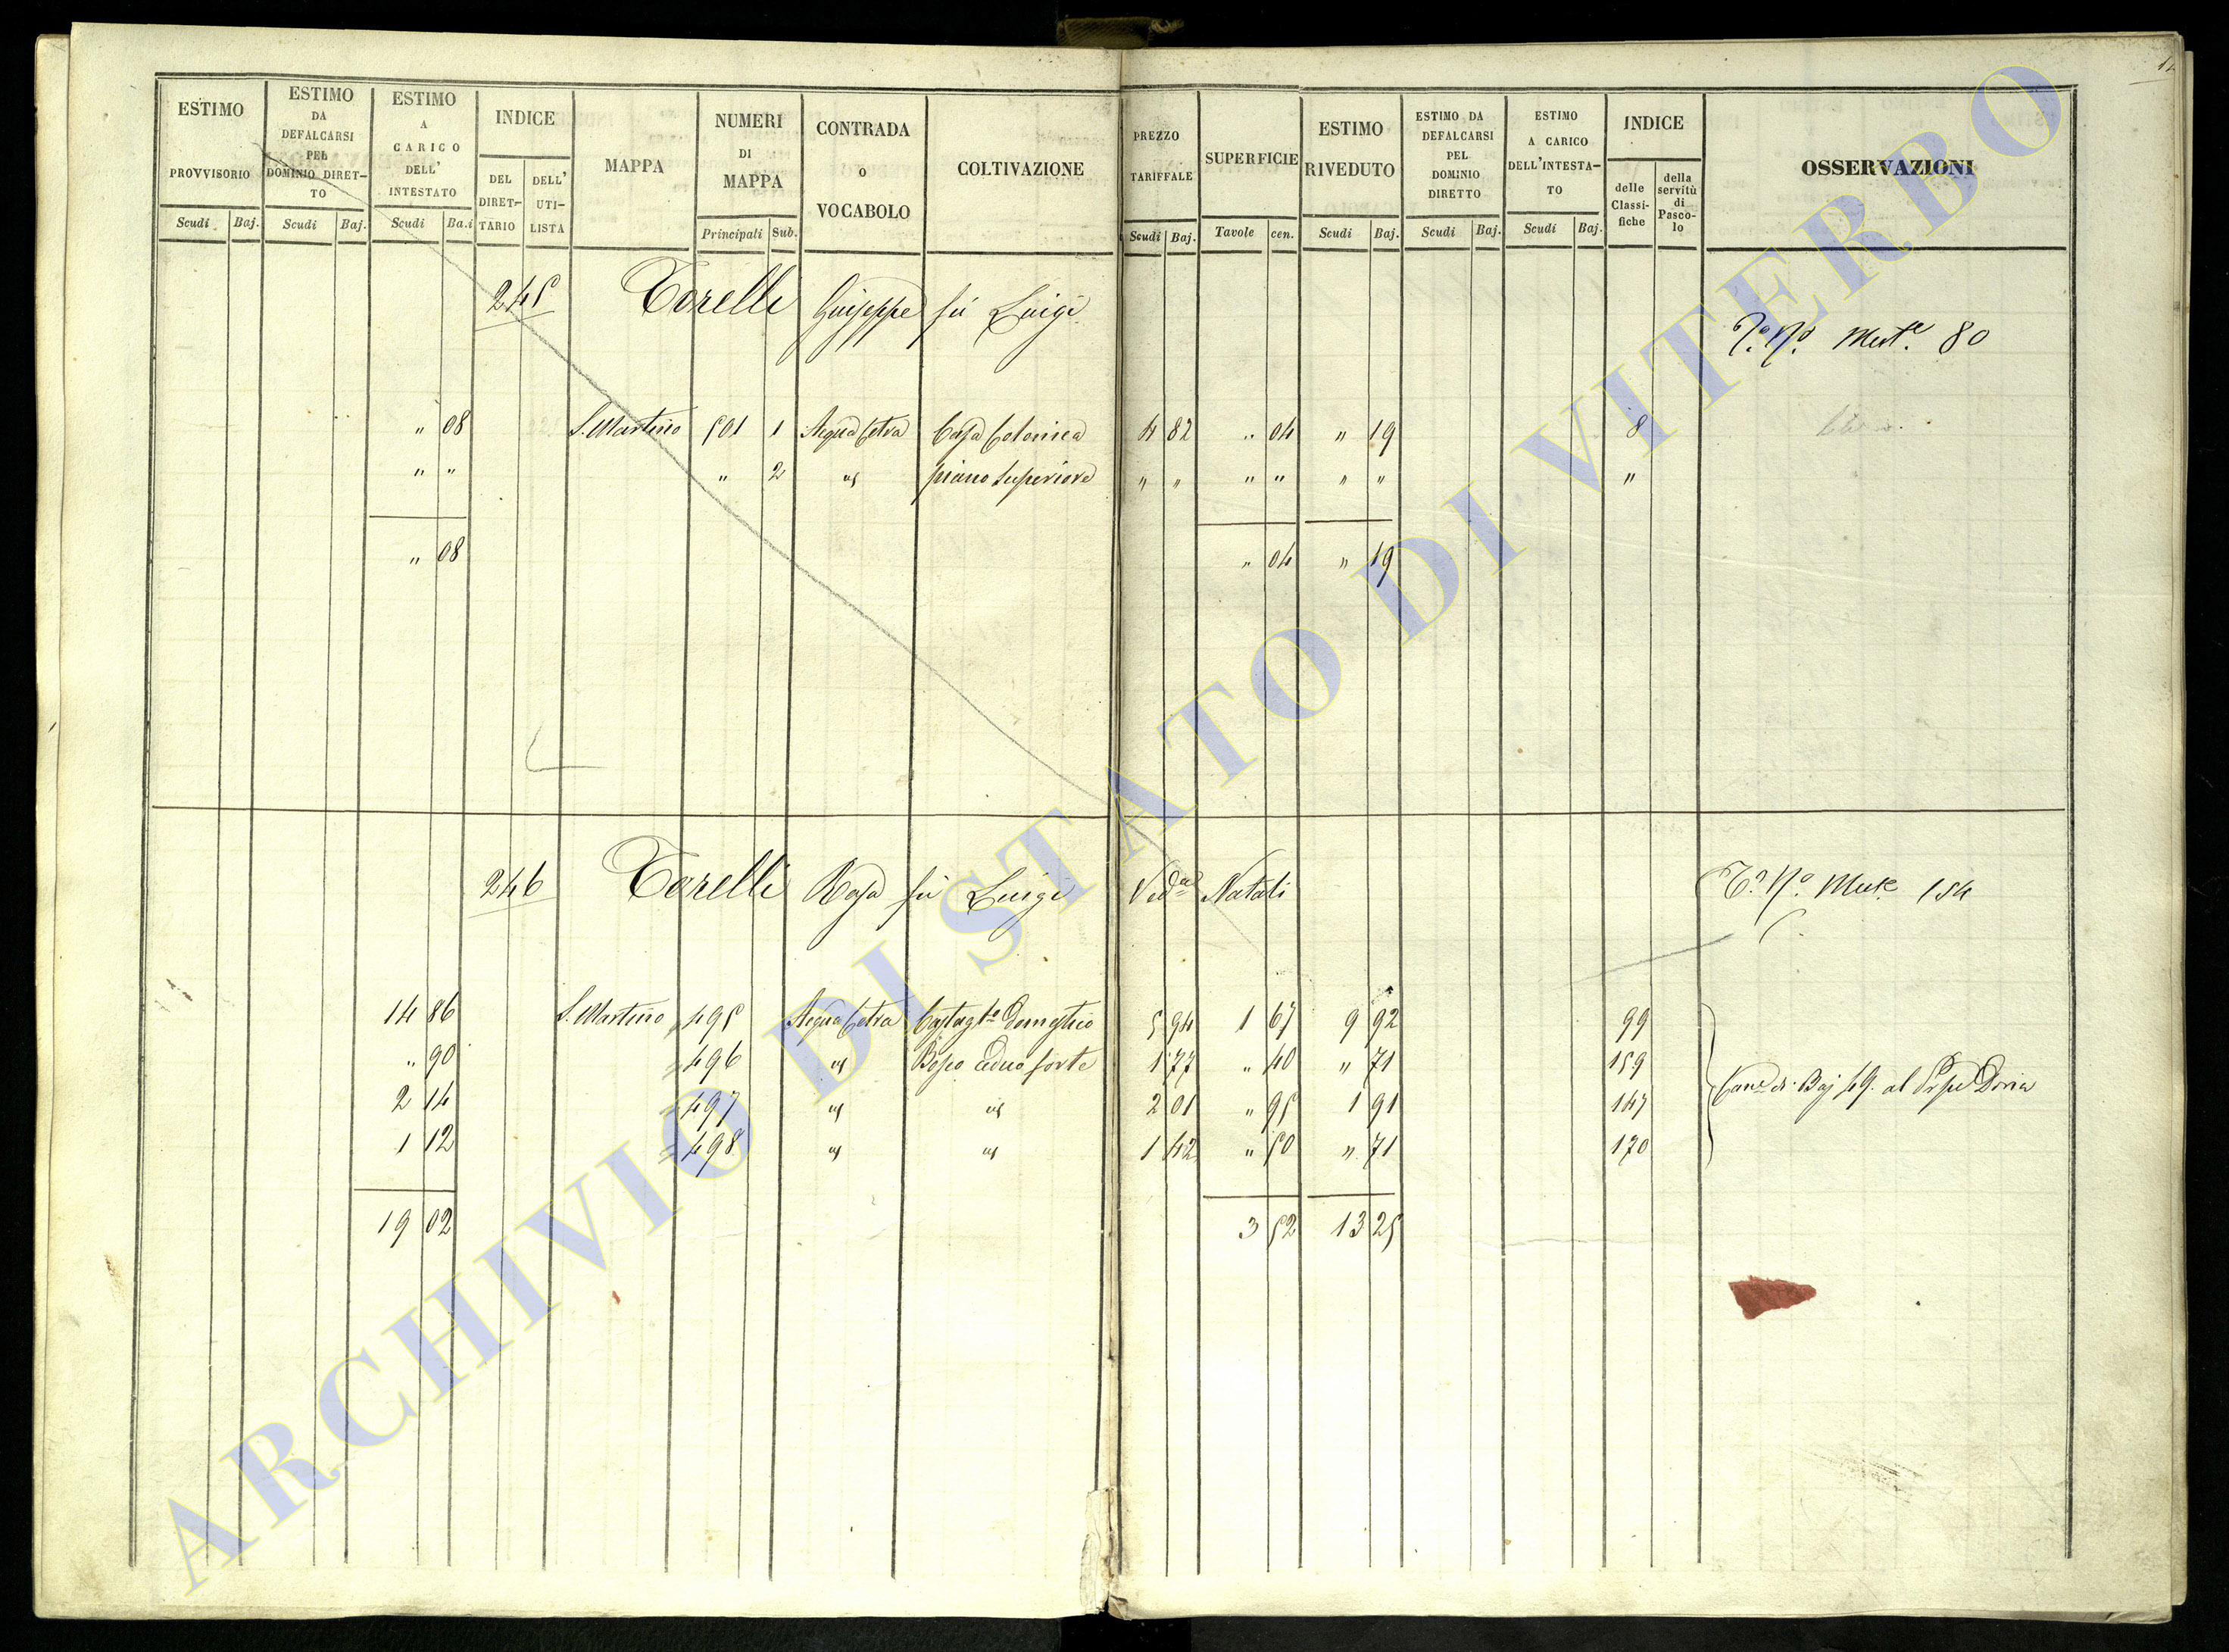 ESTIMO PROVVISORIO
Scudi Baj.
ESTIMO DA DEFALCARSI PEL DOMINIO DIRET-TO
Scudi Baj.
ESTIMO A CARICO DELL' INTESTATO
Scudi Ba.i
INDICE
DEL DIRET-TARIO
DELL' UTI-LISTA
MAPPA
NUMERI DI MAPPA
Principali Sub.
CONTRADA o VOCABOLO
COLTIVAZIONE
PREZZO TARIFFALE
Scudi Baj.
SUPERFICIE
Tavole cen.
ESTIMO RIVEDUTO
Scudi Baj.
ESTIMO DA DEFALCARSI PEL DOMINIO DIRETTO
Scudi Baj.
ESTIMO A CARICO DELL'INTESTA-TO
Scudi Baj.
INDICE
delle Classi-fiche
della servitù di Pasco-lo
OSSERVAZIONI
245 Torelli Giuseppe fù Luigi
80
" 08 S. Martino 501 1 Acqua Cetra Casa Colonica 4 82 " 04 " 19 8
" " " 2 " piano superiore " " " " " " "
" 08 " 04 " 19
246 Torelli Rosa fù Luigi Ved.a Natali
154
14 86 S. Martino 495 Acqua Cetra Castag.to Domestico 5 94 1 67 9 92 99
" 90 496 " Bosco Ceduo forte 1 77 " 40 " 71 159
2 14 497 " " 2 01 " 95 1 91 147
1 12 498 " " 1 42 " 50 " 71 170
Can.e di Baj 49. al Doria
19 02 3 52 13 25
ARCHIVIO DI STATO DI VITERBO